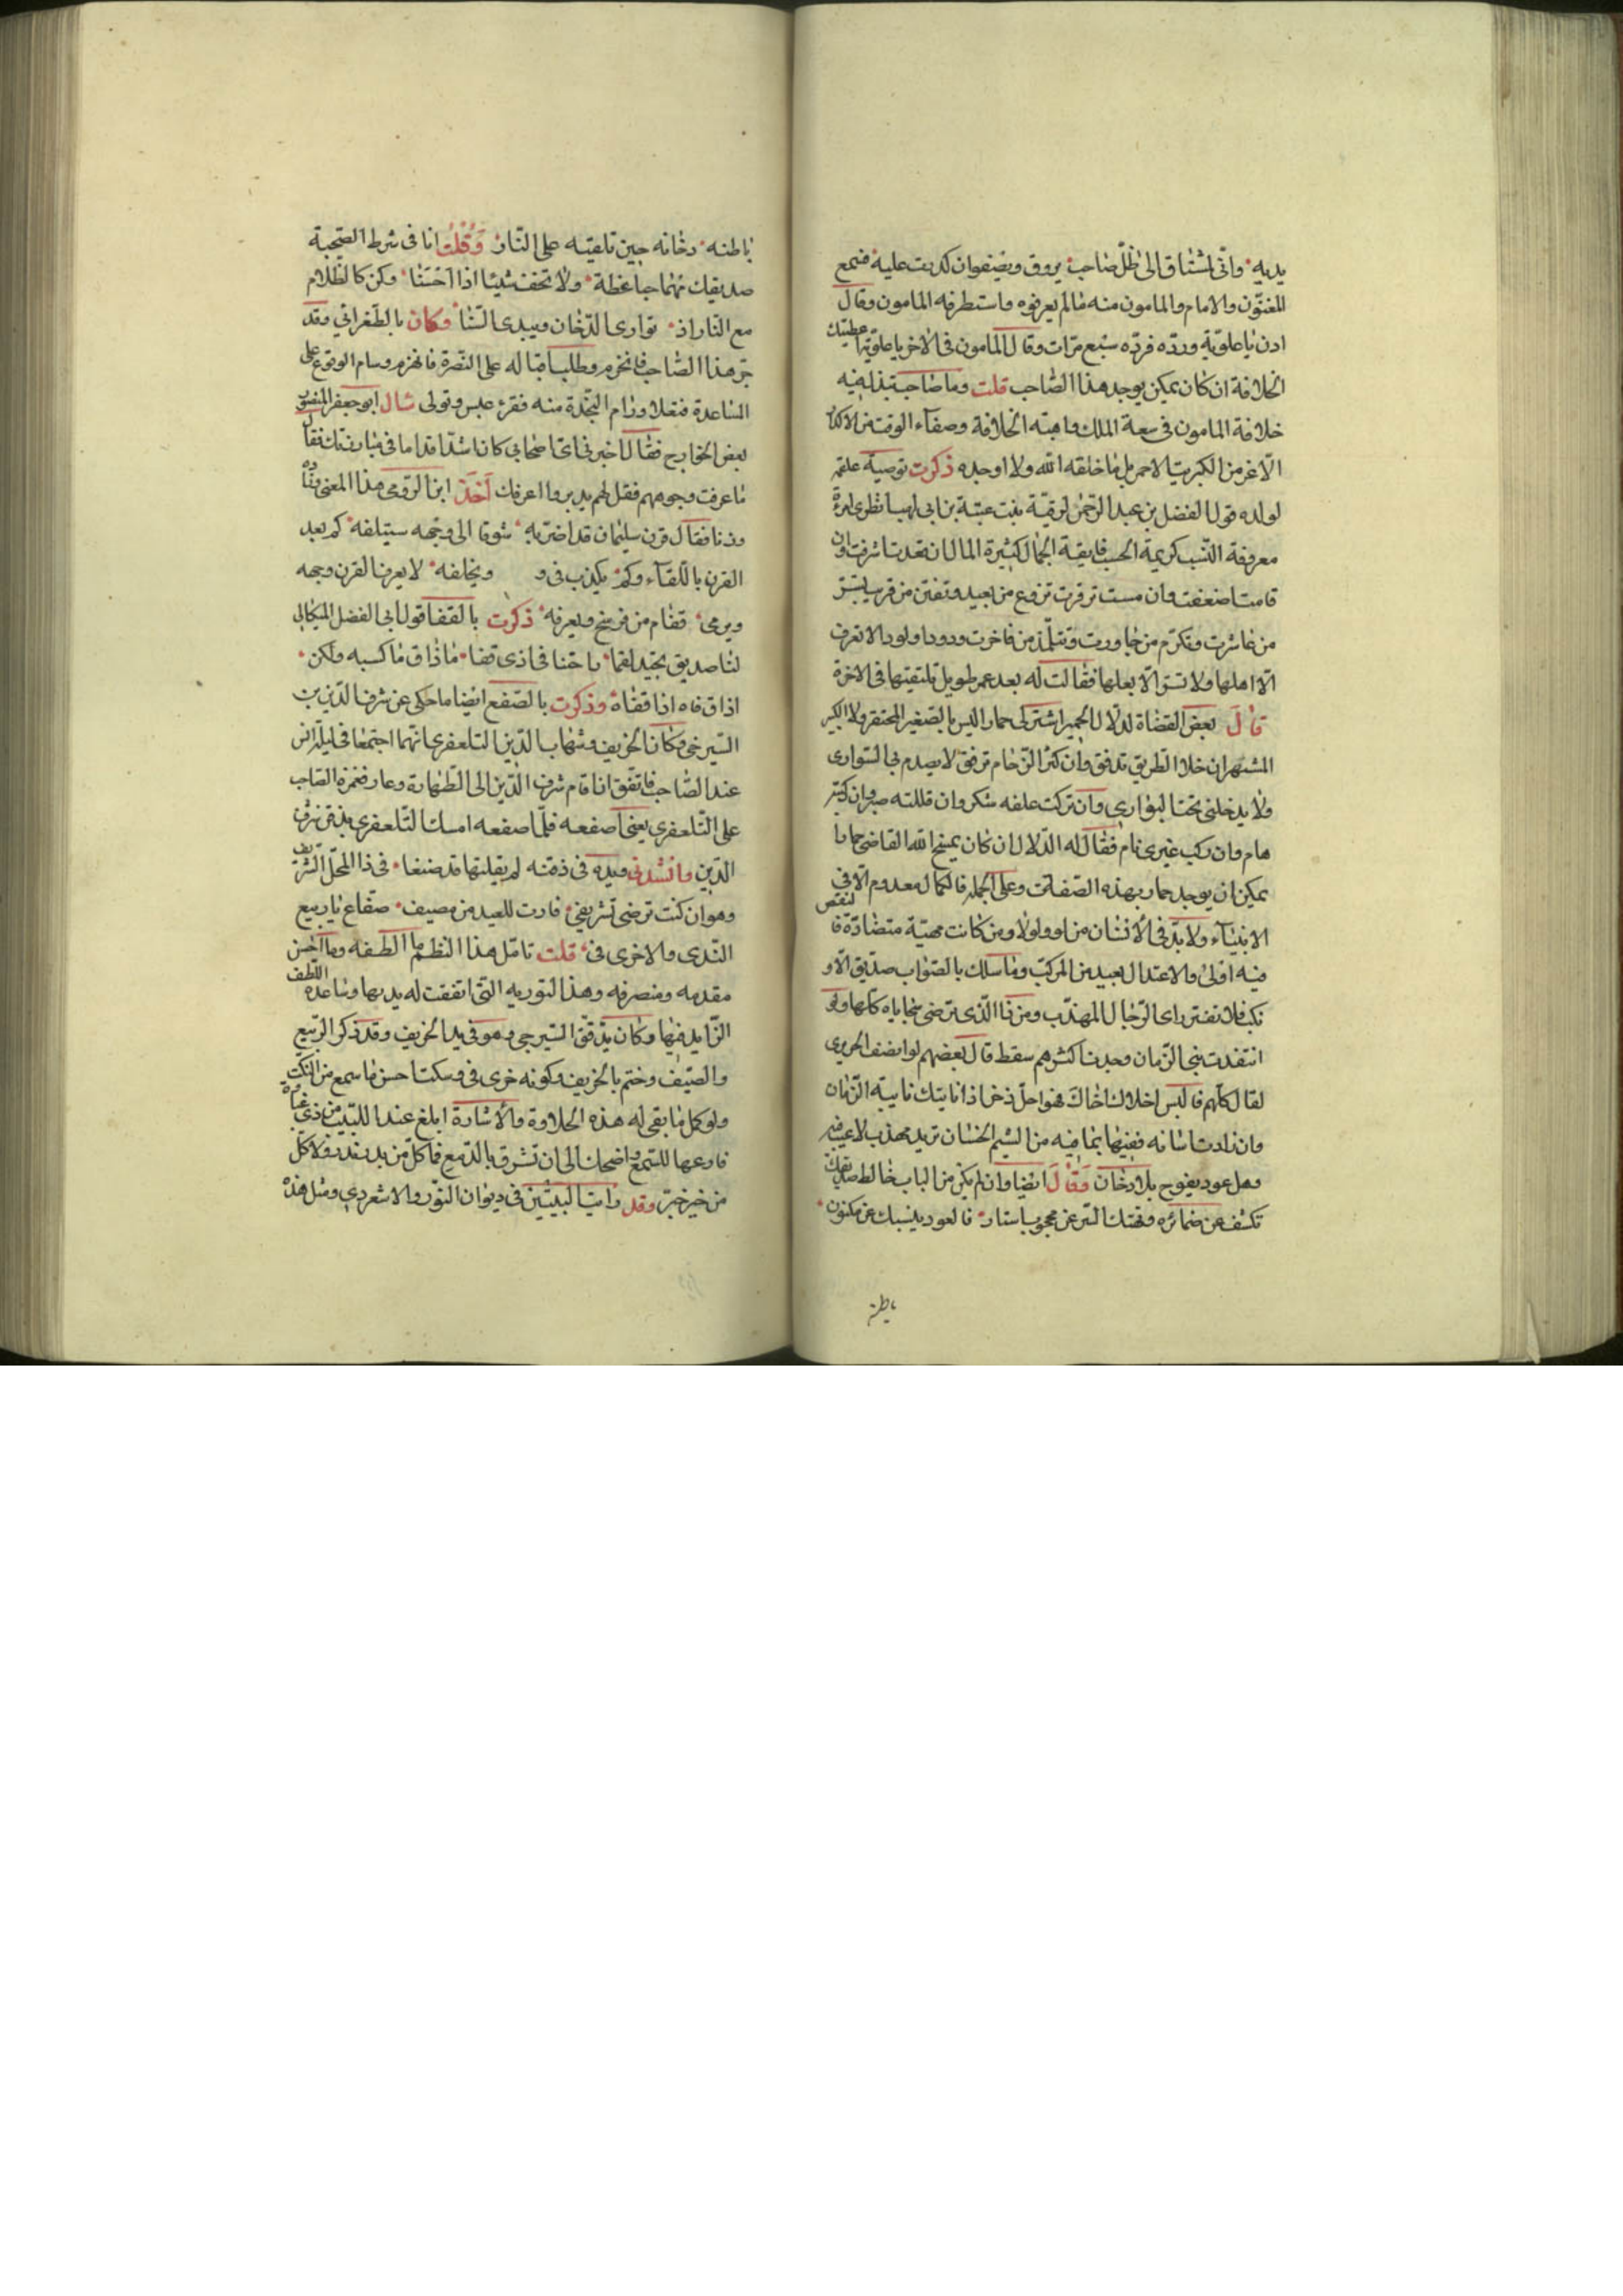 يديه واني لمشتاق الى ظل صاحب يروق ويصفو ان كدرت عليه فسمع
المغنون والامام والمامون منه ما لم يعرفوه واستطرفه المامون وقال
ادن يا علوية وردده فردده سبع مرات وقال المامون في الآخر يا علوية اعطيتك
الخلافة ان كان يمكن يوجد هذا الصاحب قلت وما صاحب تبذل فيه
خلافة المامون في سعة الملك وابهة الخلافة وصفاء الوقت من الاكدار
الا اعز من الكبريت الاحمر بل ما خلقه الله ولا اوجده ذكرت توصية علقمة
لولده قول الفضل بن عبد الرحمن لرقية بنت عتبة بن ابي لهب انظري امرأة
معروفة النسب كريمة الحسب فايقة الجمال كثيرة المال ان قعدت اشرفت وان
قامت اضعفت وان مست ترقرت تروع من بعيد وتفتن من قريب تسر
من عاشرت وتكرم من جاورت وتتلذ من فاخرت ودودا ولودا لا تعرف
الا اهلها ولا تسر الا بعلها فقالت له بعد عمر طويل تلتقيها في الآخرة
قال بعض القضاة لدلال الحمير اشتر لي حمارا ليس بالصغير المحتقر ولا الكبير
المشتهر ان خلا الطريق تدفق وان كثر الزحام ترفق لا يصدم بي السواري
ولا يدخلني تحت البواري وان تركت علفه شكر وان قللته صبر وان كثر
هام وان ركب غيري نام فقال له الدلال ان كان يمسخ الله القاضي حمارا
يمكن ان يوجد حمار بهذه الصفات وعلى الجملة فالكمال معدوم الا في
الانبياء ولا بد في الانسان من لو ولولا ومن كانت مهيته متضادة فالنقص
فيه اولى والاعتدال بعيد من المركب وما سلك بالصواب صديق الا و
نكب فلا تغتر راى الرجال المهذب ومن ذا الذي ترضى سجاياه كلها ولو
انتقدت بني الزمان وجدت اكثرهم سقط قال بعضهم لو انصف الحريري
لقال كلهم فالبس اخلائك اخاك فهو اجل ذخر اذا نابتك نايبة الزمان
وان زادت اساته ففيها بما فيه من الشيم الحسان تريد مهذبا لا عيب فيه
وهل عود يفوح بلا دخان وقال ايضا وان لم يكن من الباب خالط صديقك
تكشف عن ضمائره وتهتك الستر عن محجوب استار فالعود ينبيك عن مكنون
باطنه
باطنه دخانه حين تلقيه على النار وقلت انا في شرط الصحبة
صديقك مهما جنا غطه ولا تخف شيئا اذا احسنا وكن كالظلام
مع النار اذ توارى الدخان ويبدي السنا وكان بالطغرائي وقد
جر هذا الصاحب فانخرم وطلب اقباله على النصرة فانهزم وسام الوقوع على
المساعدة فنقلا ورام النجدة منه فقرء عبس وتولى سال ابو جعفر المنصور
بعض الخوارج فقال اخبرني اي اصحابي كان اشد اقداما في مبارزتك فقال
ما عرفت وجوههم فقل لهم يدبروا اعرفك اخذ ابن الرومي هذا المعنى وزاده
وزنا فقال قرن سليمان قد اضر به شوقا الى وجهه سيتلفه كم يعد
القرن باللقاء وكم يكذب في و ويخلفه لا يعرف القرن وجهه
ويرمي قفاه من فرسخ ويعرفه ذكرت بالقفا قول ابي الفضل الميكالي
لنا صديق يجيد لقما راحتنا في اذى قفا ما ذاق ما كسبه ولكن
اذاق فاه اذا قفاه وذكرت بالصفع ايضا ما حكي عن شرف الدين بن
السيرجي وكان الخريف وشهاب الدين التلعفري انهما اجتمعا في ليلة انس
عند الصاحب فاتفق ان قام شرف الدين الى الطهارة وعاد فغمزه الصاحب
على التلعفري يعني اصفعه فلما صفعه امسك التلعفري بذقن شرف
الدين وانشد في ويده في ذقنه لم يقلتها قد صنعا في ذا المحل الشريف
وهو ان كنت ترضى تشريفي فارث للعبد من مصيف صفاع يا ربيع
الندى والا خرى في قلت تامل هذا النظم ما الطفه وما احسن
مقدمه ومنصرفه وهذا التوريه التي اتفقت له يديها وساعده اللطف
الزايد فيها وكان بذقن السيرجي وهو في يد الخريف وقد ذكر الربيع
والصيف وختم بالخريف وكونه خرى في وسكت احسن ما سمع من النكت
ولو كمل ما بقي له هذه الحلاوة والاشارة ابلغ عند اللبيب من ذي عباره
فارعها للسمع واضحك الى ان تشرق بالدمع فما كل من بدر ندر ولا كل
من خير خبر وقد رايت البيتين في ديوان النور والاشعردي ومثل هذه